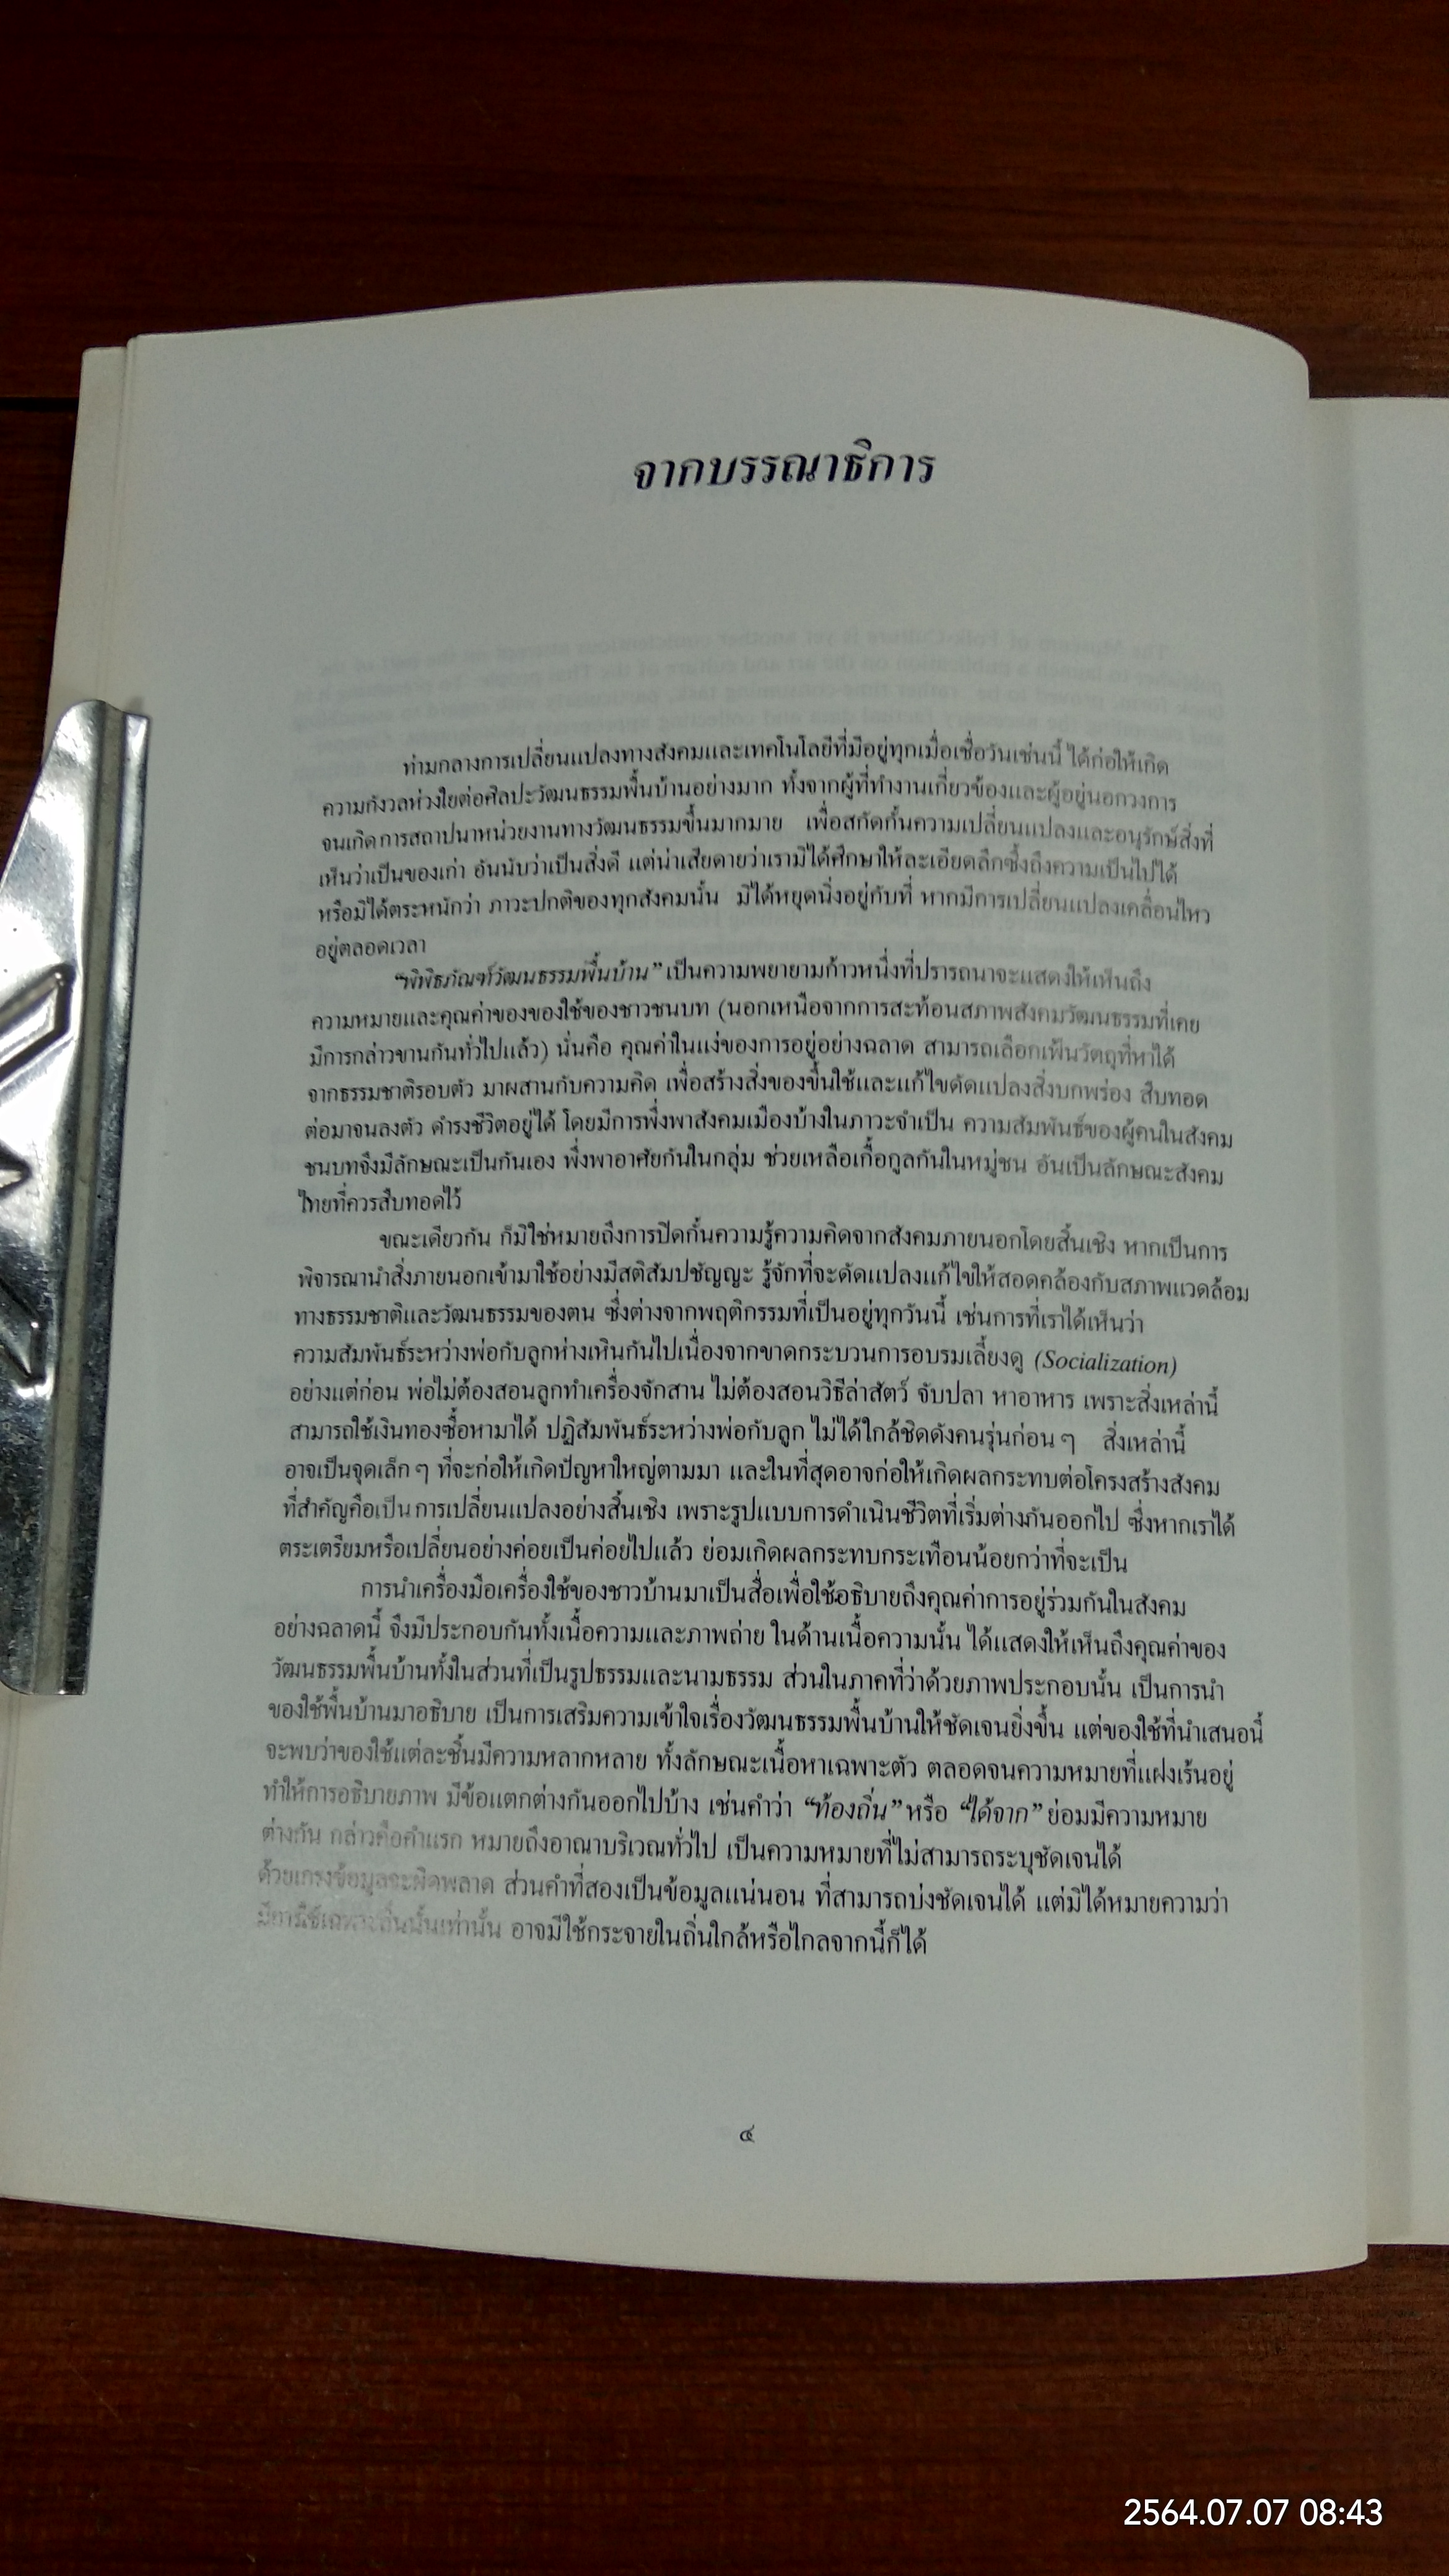 จากบรรณาธิการ
ท่ามกลางการเปลี่ยนแปลงทางสังคมและเทคโนโลยีที่มีอยู่ทุกเมื่อเชื่อวันเช่นนี้ ได้ก่อให้เกิด
ความกังวลห่วงใยต่อศิลปะวัฒนธรรมพื้นบ้านอย่างมาก ทั้งจากผู้ที่ทำงานเกี่ยวข้องและผู้อยู่นอกวงการ
จนเกิดการสถาปนาหน่วยงานทางวัฒนธรรมขึ้นมากมาย เพื่อสกัดกั้นความเปลี่ยนแปลงและอนุรักษ์สิ่งที่
เห็นว่าเป็นของเก่า อันนับว่าเป็นสิ่งดี แต่น่าเสียดายว่าเรามิได้ศึกษาให้ละเอียดลึกซึ้งถึงความเป็นไปได้
หรือมิได้ตระหนักว่า ภาวะปกติของทุกสังคมนั้น มิได้หยุดนิ่งอยู่กับที่ หากมีการเปลี่ยนแปลงเคลื่อนไหว
อยู่ตลอดเวลา
“พิพิธภัณฑ์วัฒนธรรมพื้นบ้าน” เป็นความพยายามก้าวหนึ่งที่ปรารถนาจะแสดงให้เห็นถึง
ความหมายและคุณค่าของของใช้ของชาวชนบท (นอกเหนือจากการสะท้อนสภาพสังคมวัฒนธรรมที่เคย
มีการกล่าวขานกันทั่วไปแล้ว) นั่นคือ คุณค่าในแง่ของการอยู่อย่างฉลาด สามารถเลือกเฟ้นวัตถุที่หาได้
จากธรรมชาติรอบตัว มาผสานกับความคิด เพื่อสร้างสิ่งของขึ้นใช้และแก้ไขดัดแปลงสิ่งบกพร่อง สืบทอด
ต่อมาจนลงตัว ดำรงชีวิตอยู่ได้ โดยมีการพึ่งพาสังคมเมืองบ้างในภาวะจำเป็น ความสัมพันธ์ของผู้คนในสังคม
ชนบทจึงมีลักษณะเป็นกันเอง พึ่งพาอาศัยกันในกลุ่ม ช่วยเหลือเกื้อกูลกันในหมู่ชน อันเป็นลักษณะสังคม
ไทยที่ควรสืบทอดไว้
ขณะเดียวกัน ก็มิใช่หมายถึงการปิดกั้นความรู้ความคิดจากสังคมภายนอกโดยสิ้นเชิง หากเป็นการ
พิจารณานำสิ่งภายนอกเข้ามาใช้อย่างมีสติสัมปชัญญะ รู้จักที่จะดัดแปลงแก้ไขให้สอดคล้องกับสภาพแวดล้อม
ทางธรรมชาติและวัฒนธรรมของตน ซึ่งต่างจากพฤติกรรมที่เป็นอยู่ทุกวันนี้ เช่นการที่เราได้เห็นว่า
ความสัมพันธ์ระหว่างพ่อกับลูกห่างเหินกันไปเนื่องจากขาดกระบวนการอบรมเลี้ยงดู (Socialization)
อย่างแต่ก่อน พ่อไม่ต้องสอนลูกทำเครื่องจักสาน ไม่ต้องสอนวิธีล่าสัตว์ จับปลา หาอาหาร เพราะสิ่งเหล่านี้
สามารถใช้เงินทองซื้อหามาได้ ปฏิสัมพันธ์ระหว่างพ่อกับลูก ไม่ได้ใกล้ชิดดังคนรุ่นก่อน ๆ สิ่งเหล่านี้
อาจเป็นจุดเล็ก ๆ ที่จะก่อให้เกิดปัญหาใหญ่ตามมา และในที่สุดอาจก่อให้เกิดผลกระทบต่อโครงสร้างสังคม
ที่สำคัญคือเป็นการเปลี่ยนแปลงอย่างสิ้นเชิง เพราะรูปแบบการดำเนินชีวิตที่เริ่มต่างกันออกไป ซึ่งหากเราได้
ตระเตรียมหรือเปลี่ยนอย่างค่อยเป็นค่อยไปแล้ว ย่อมเกิดผลกระทบกระเทือนน้อยกว่าที่จะเป็น
การนำเครื่องมือเครื่องใช้ของชาวบ้านมาเป็นสื่อเพื่อใช้อธิบายถึงคุณค่าการอยู่ร่วมกันในสังคม
อย่างฉลาดนี้ จึงมีประกอบกันทั้งเนื้อความและภาพถ่าย ในด้านเนื้อความนั้น ได้แสดงให้เห็นถึงคุณค่าของ
วัฒนธรรมพื้นบ้านทั้งในส่วนที่เป็นรูปธรรมและนามธรรม ส่วนในภาคที่ว่าด้วยภาพประกอบนั้น เป็นการนำ
ของใช้พื้นบ้านมาอธิบาย เป็นการเสริมความเข้าใจเรื่องวัฒนธรรมพื้นบ้านให้ชัดเจนยิ่งขึ้น แต่ของใช้ที่นำเสนอนี้
จะพบว่าของใช้แต่ละชิ้นมีความหลากหลาย ทั้งลักษณะเนื้อหาเฉพาะตัว ตลอดจนความหมายที่แฝงเร้นอยู่
ทำให้การอธิบายภาพ มีข้อแตกต่างกันออกไปบ้าง เช่นคำว่า “ท้องถิ่น” หรือ “ได้จาก” ย่อมมีความหมาย
ต่างกัน กล่าวคือคำแรก หมายถึงอาณาบริเวณทั่วไป เป็นความหมายที่ไม่สามารถระบุชัดเจนได้
ด้วยเกรงข้อมูลจะผิดพลาด ส่วนคำที่สองเป็นข้อมูลแน่นอน ที่สามารถบ่งชัดเจนได้ แต่มิได้หมายความว่า
มีการใช้เฉพาะถิ่นนั้นเท่านั้น อาจมีใช้กระจายในถิ่นใกล้หรือไกลจากนี้ก็ได้
๔
2564.07.07 08:43